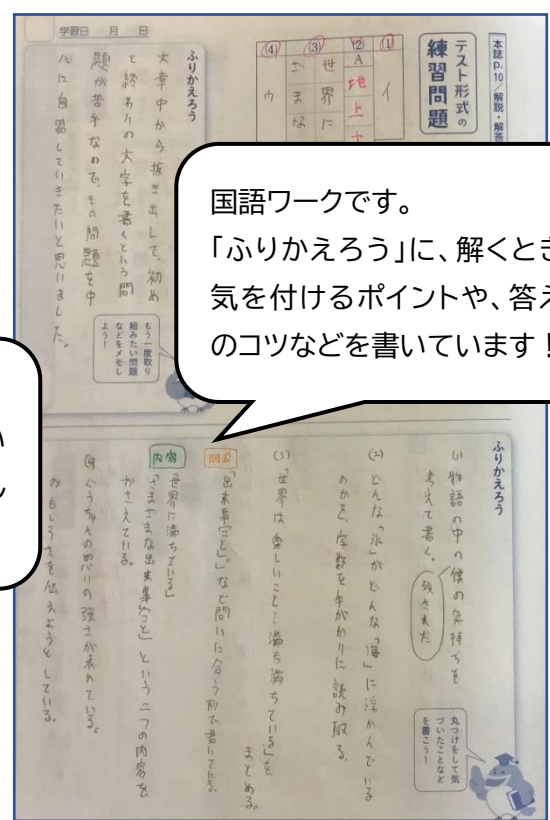 学習日　月　日
本誌p.10／解説・解答
テスト形式の
練習問題
(1)
イ
(2)
A
地上
(3)
世界に
さまざまな
(4)
ウ
ふりかえろう
文章中から抜き出して、初め
と終わりの文字を書くという問
題が苦手なので、その問題を中
心に自習していきたいと思いました。
もう一度取り
組みたい問題
などをメモし
よう！
国語ワークです。
「ふりかえろう」に、解くとき
気を付けるポイントや、答え
のコツなどを書いています！
い
ふりかえろう
(1) 物語の中の僕の気持ちを
考えて書く。
残された
(2) どんな「氷」がどんな「海」に浮かんでいる
のかを、字数を手がかりに読み取る。
(3) 「世界は、楽しいこと…満ち満ちている」を
まとめる。
「出来事（こと）。」など問いに合う形で書いている。
内容
「世界に満ちている」
「さまざまな出来事（こと）」という二つの内容を
おさえている。
(4) ぐうちゃんの思いの強さが表れている。
おもしろさを伝えようとしている。
丸つけをして気
づいたことなど
を書こう！